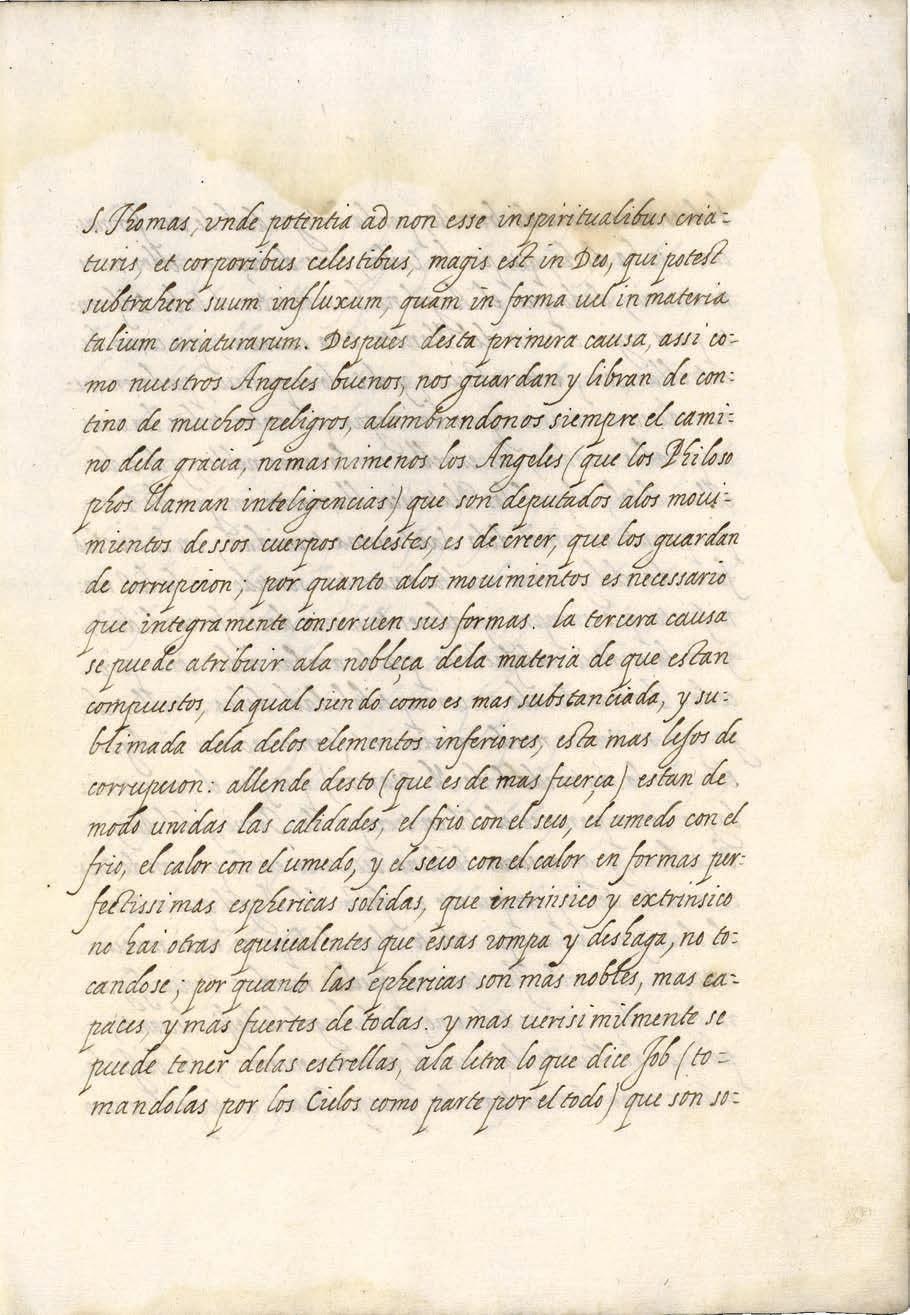 S. Thomas, vnde potentia ad non esse inspiritualibus cria-
turis, et corporibus celestibus, magis est in Deo, qui potest
subtrahere suum influxum, quam in forma uel in materia
talium criaturarum. Despues desta primera causa, assi co-
mo nuestros Angeles buenos, nos guardan y libran de con-
tino de muchos peligros, alumbrandonos siempre el cami-
no dela gracia, nimasnimenos los Angeles (que los Philoso
phos llaman inteligencias) que son deputados alos moui-
mientos dessos cuerpos celestes, es de creer, que los guardan
de corrupcion; por quanto alos mouimientos es necessario
que integramente conseruen sus formas. la tercera causa
se puede atribuir ala nobleça dela materia de que estan
compuestos, laqual siendo como es mas substanciada, y su-
blimada dela delos elementos inferiores, esta mas lejos de
corrupcion: allende desto (que es de mas fuerça) estan de
modo unidas las calidades, el frio con el seco, el umedo con el
frio, el calor con el umedo, y el seco con el calor en formas per-
fectissimas esphericas solidas, que intrinsico y extrinsico
no hai otras equiualentes que essas rompa y deshaga, no to-
candose; por quanto las ephericas son mas nobles, mas ca-
paces, y mas fuertes de todas. y mas uerisimilmente se
puede tener delas estrellas, ala letra lo que dice Job (to-
mandolas por los Cielos como parte por el todo) que son so-